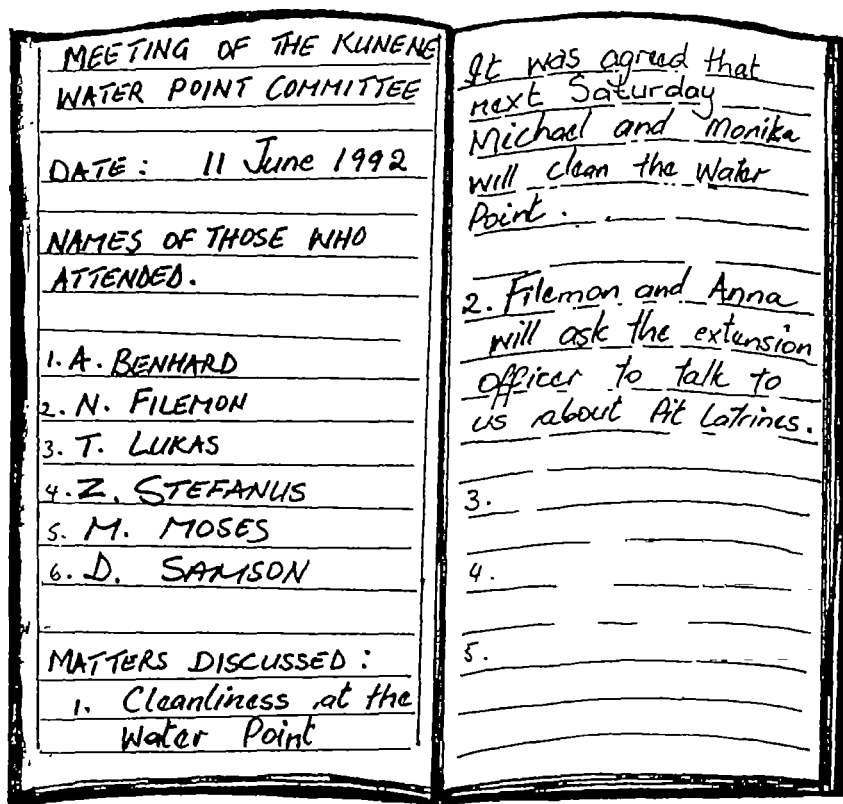 MEETING OF THE KUNENE
WATER POINT COMMITTEE
DATE: 11 June 1992
NAMES OF THOSE WHO
ATTENDED.
1. A. BENHARD
2. N. FILEMON
3. T. LUKAS
4. Z. STEFANUS
5. M. MOSES
6. D. SAMSON
MATTERS DISCUSSED:
1. Cleanliness at the
Water Point
It was agreed that
next Saturday
Michael and Monika
will clean the Water
Point.
2. Filemon and Anna
will ask the extension
officer to talk to
us about Pit Latrines.
3.
4.
5.